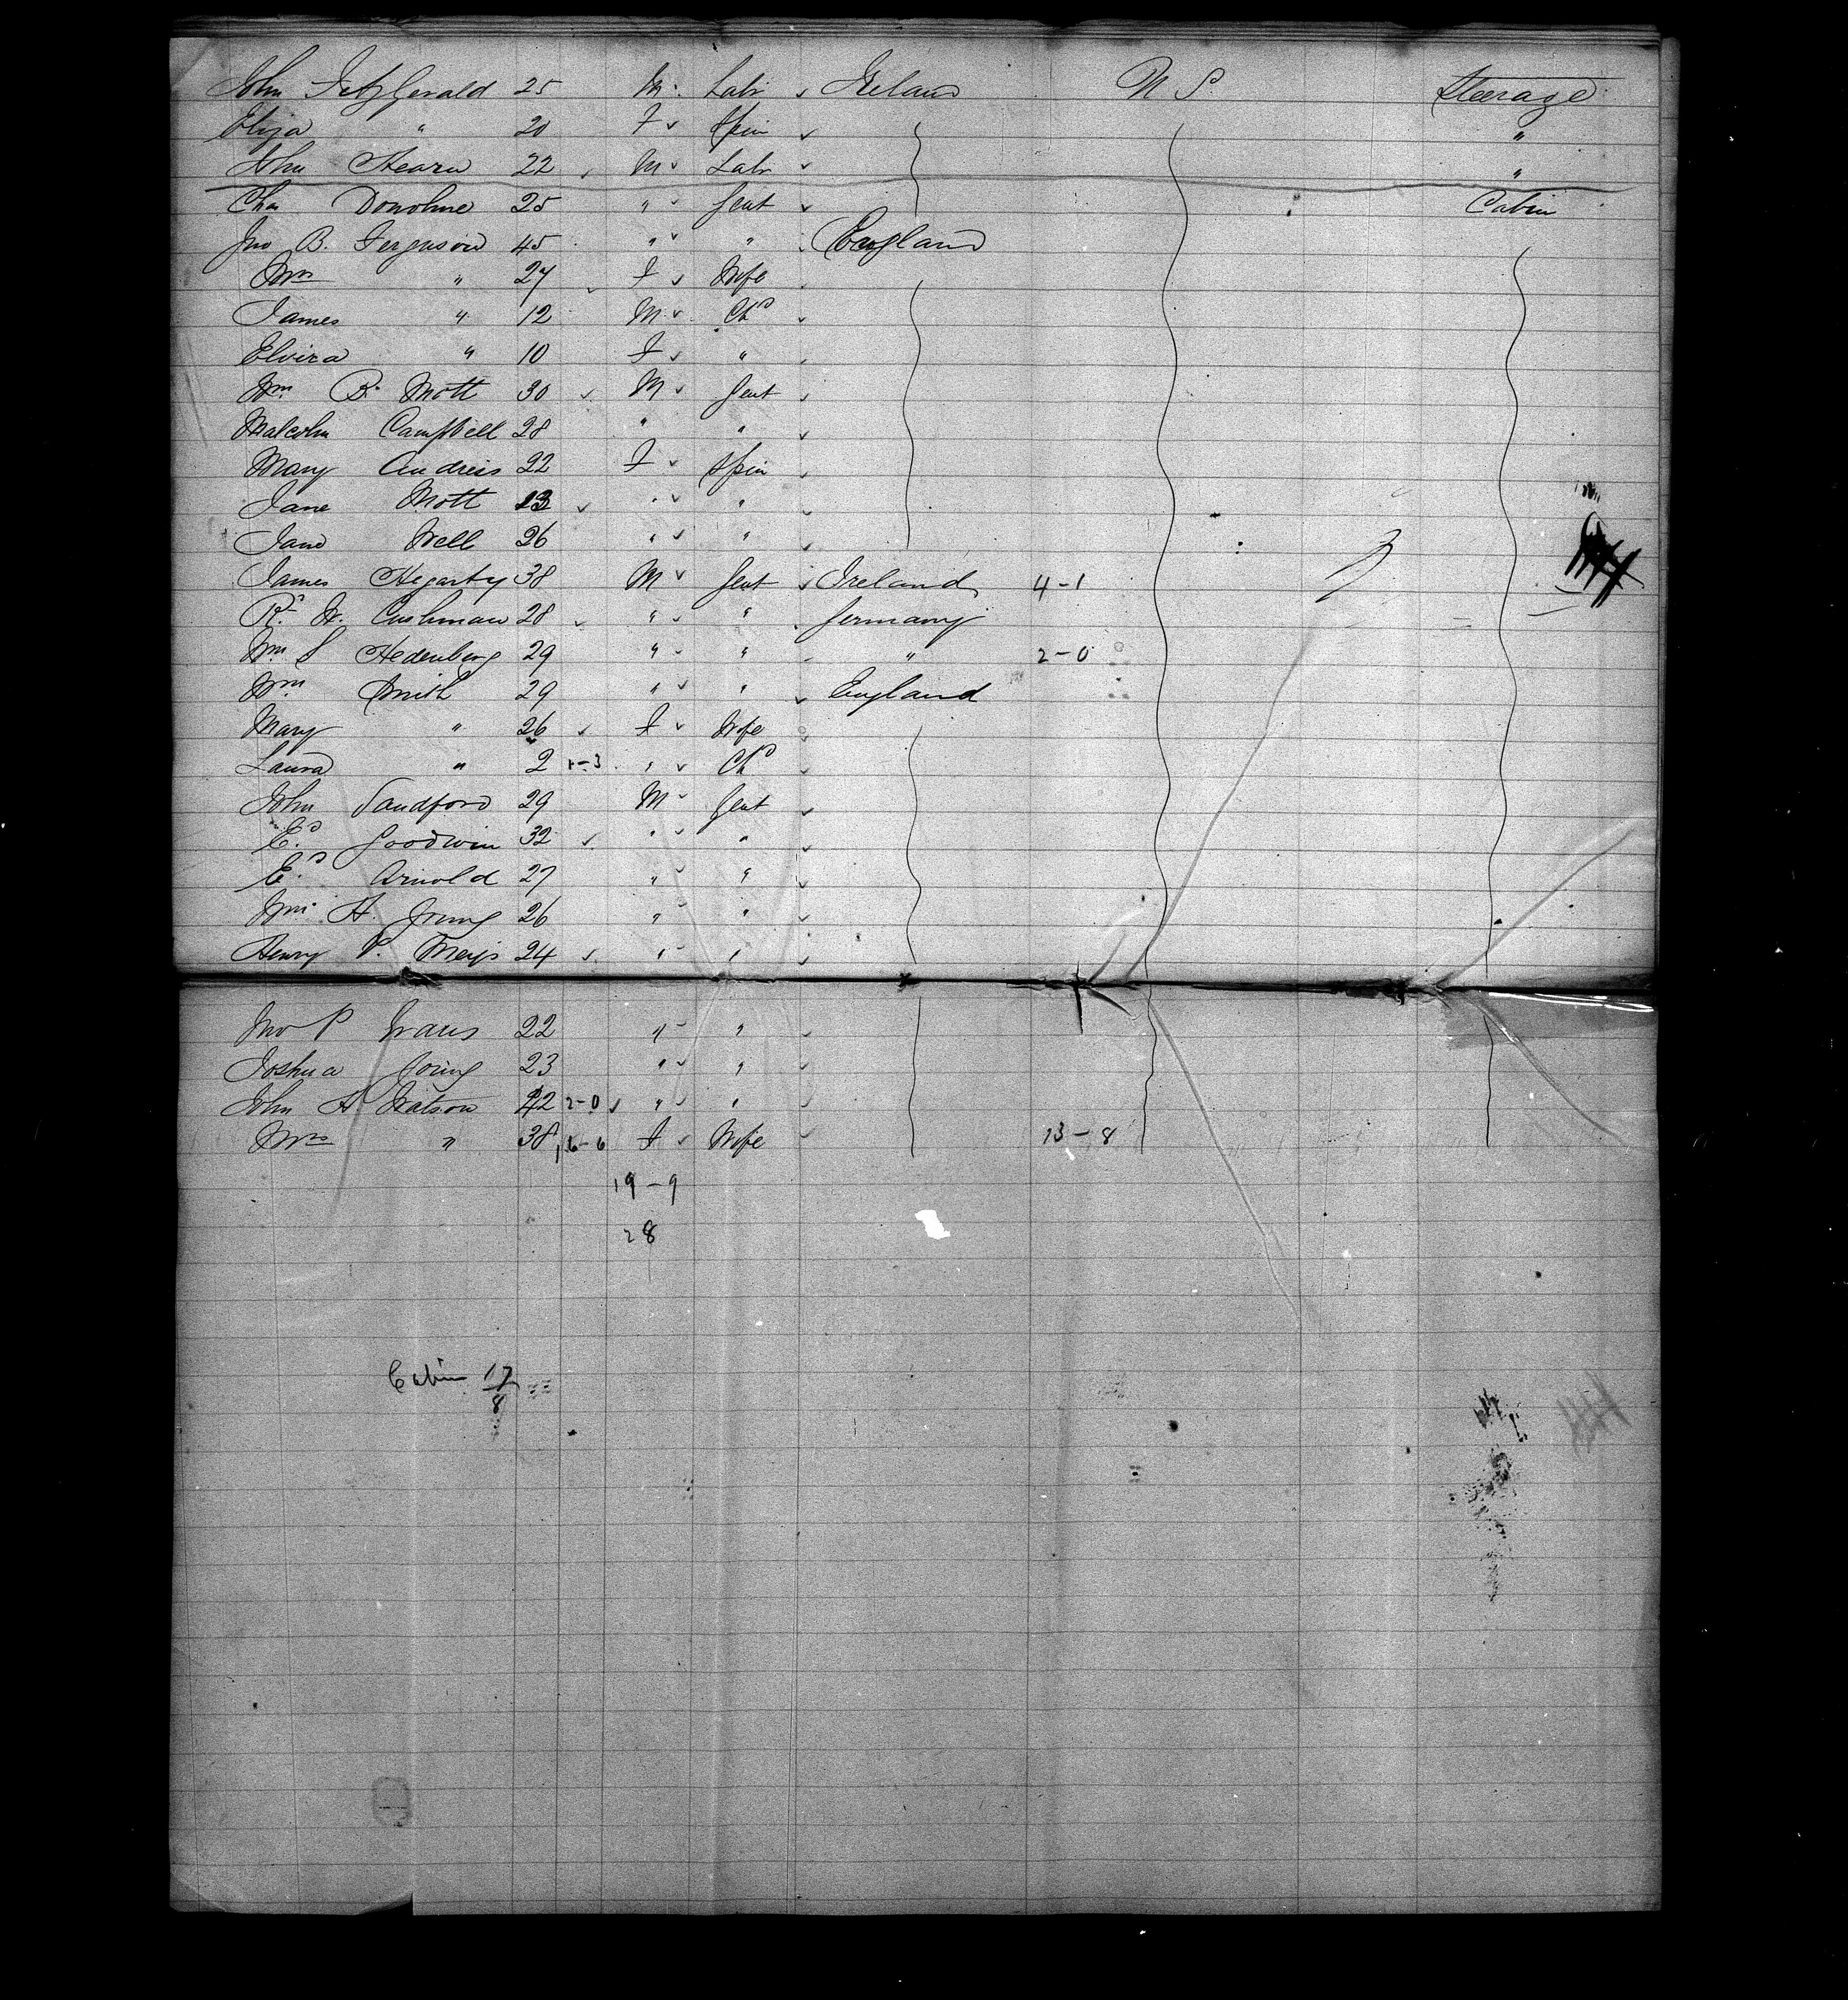 John FitzGerald 25 M. Labr Ireland U S Steerage
Eliza " 20 F Spin "
John Hearn 22 M Labr "
Chs Donohue 25 " Gent Cabin
Jno B. Ferguson 45 " " England
Mrs " 27 F Wife
James " 12 M Chd
Elvira " 10 F "
Wm B. Mott 30 M Gent
Malcolm Campbell 28 " "
Mary Andreis 22 F Spin
Jane Mott 13 " "
Jane Well 26 " "
James Hegarty 38 M Gent Ireland 4-1
Rt. W. Cushman 28 " " Germany
Wm S Hedenberg 29 " " " 2-0
Wm Smith 29 " " England
Mary " 26 F Wife
Laura " 2 1-3 " Chd
John Sandford 29 M Gent
Ed. Goodwin 32 " "
Ed. Arnold 27 " "
Wm. H. Young 26 " "
Henry P. Meijs 24 " "
Jno P 22 " "
Joshua Young 23 " "
John H Watson 42 2-0 " "
Mrs " 38 16-6 F Wife 13-8
19-9
28
Cabin 17
8